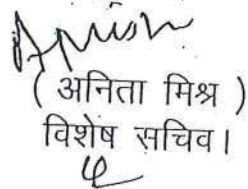 ( अनिता मिश्र )
विशेष सचिव।